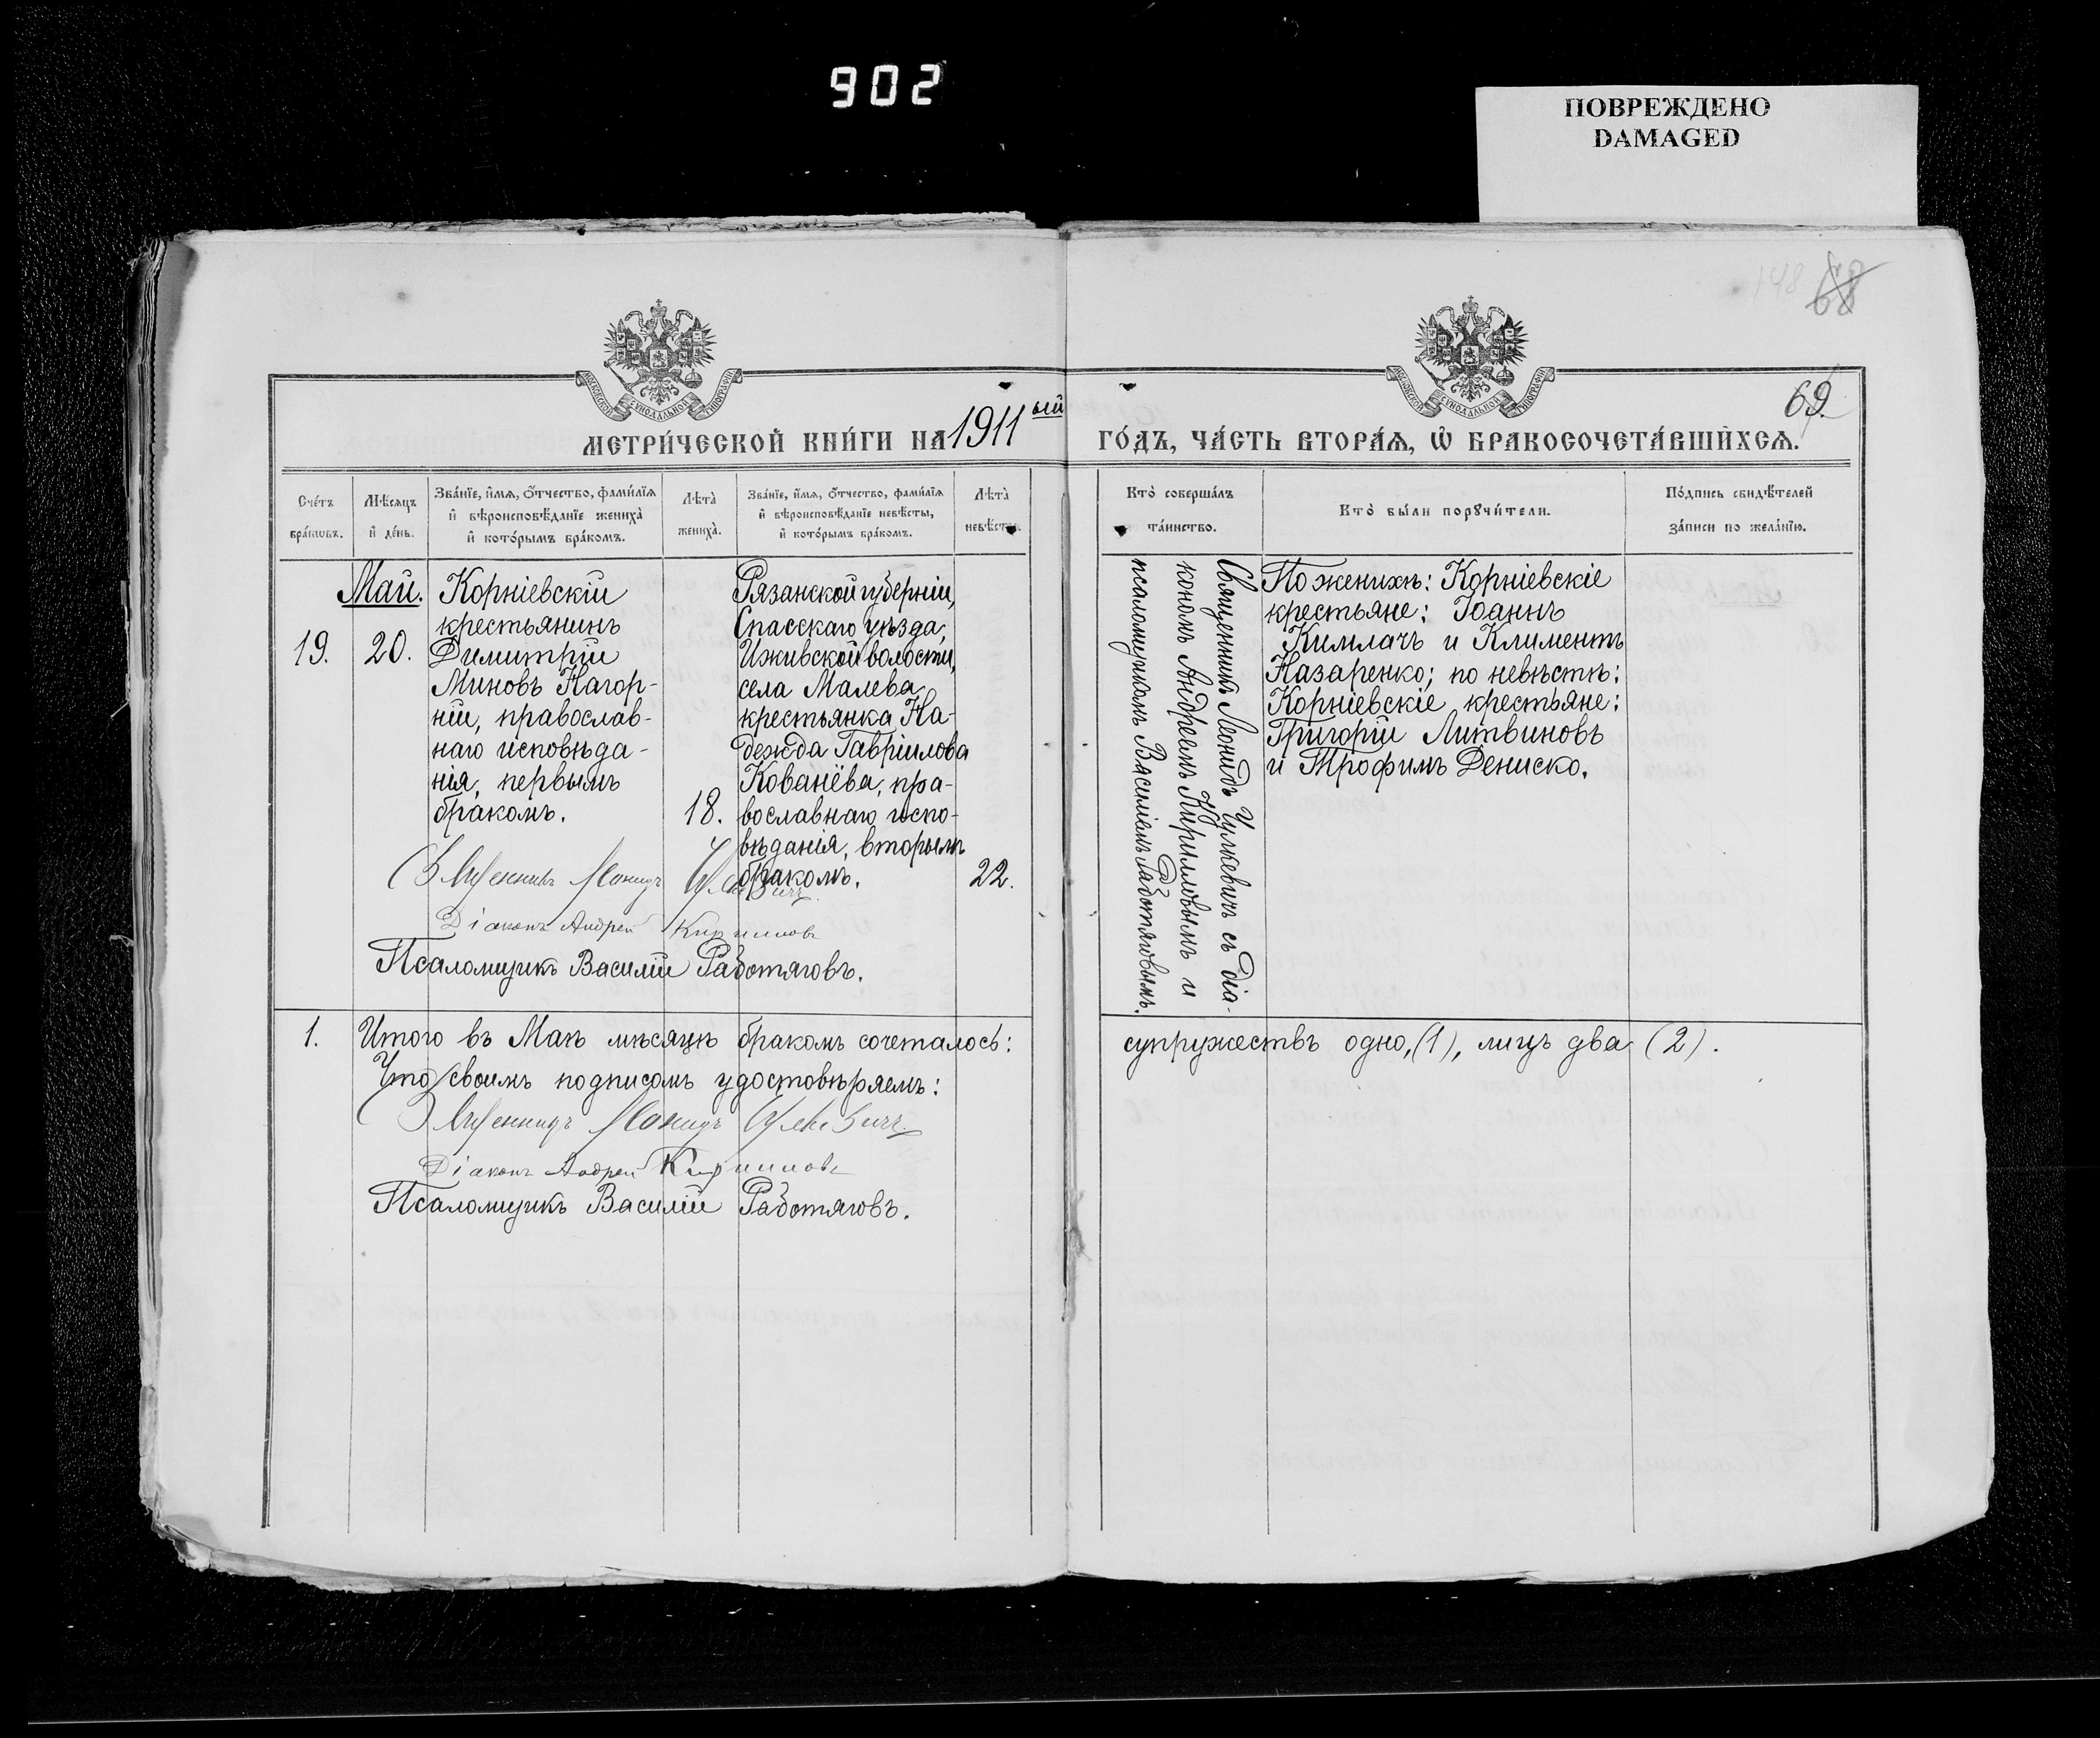 902
ПОВРЕЖДЕНО
DAMAGED
148 68
69.
МОСКОВСКОЙ СѴНОДАЛЬНОЙ ТИПОГРАФІИ
МОСКОВСКОЙ СѴНОДАЛЬНОЙ ТИПОГРАФІИ
МЕТРИ́ЧЕСКОЙ КНИ́ГИ НА 1911ый
ГО́ДЪ, ЧА́СТЬ ВТОРА́Ѧ, Ѡ҆ БРАКОСОЧЕТА́ВШИХСѦ.
Сче́тъ
бра́ковъ.
Мѣ́сѧцъ
и҆ де́нь.
Зва́нїе, и҆́мѧ, о҆́тчество, фами́лїѧ
и҆ вѣроисповѣ́данїе жениха̀
и҆ кото́рымъ бра́комъ.
Лѣта̀
жениха̀.
Зва́нїе, и҆́мѧ, о҆́тчество, фами́лїѧ
и҆ вѣроисповѣ́данїе невѣ́сты,
и҆ кото́рымъ бра́комъ.
Лѣта̀
невѣ́сты.
Кто̀ соверша́лъ
та́инство.
Кто̀ бы́ли порꙋчи́тели.
По́дпись свидѣ́телей
за́писи по жела́нїю.
Май.
19.
20.
Корніевскій
крестьянинъ
Димитрій
Миновъ Нагор-
ній, православ-
наго исповѣда-
нія, первымъ
бракомъ.
18.
Рязанской губерніи,
Спасскаго уѣзда,
Ижевской волости,
села Малева
крестьянка На-
дежда Гавріилова
Кованёва, пра-
вославнаго испо-
вѣданія, вторымъ
бракомъ.
22.
Священникъ Леонидъ Чулкевичъ съ діа-
кономъ Андреемъ Кирилловымъ и
псаломщикомъ Василіемъ Работяговымъ.
По женихѣ: Корніевскіе
крестьяне: Іоаннъ
Кимлачъ и Климентъ
Назаренко; по невѣстѣ:
Корніевскіе крестьяне:
Григорій Литвиновъ
и Трофимъ Дениско.
Священникъ Леонидъ Чулкевичъ
Діаконъ Андрей Кирилловъ
Псаломщикъ Василій Работяговъ.
1. Итого въ Маѣ мѣсяцѣ бракомъ сочеталось: супружествъ одно, (1), лицъ два (2).
Что своимъ подписомъ удостовѣряемъ:
Священникъ Леонидъ Чулкевичъ
Діаконъ Андрей Кирилловъ
Псаломщикъ Василій Работяговъ.